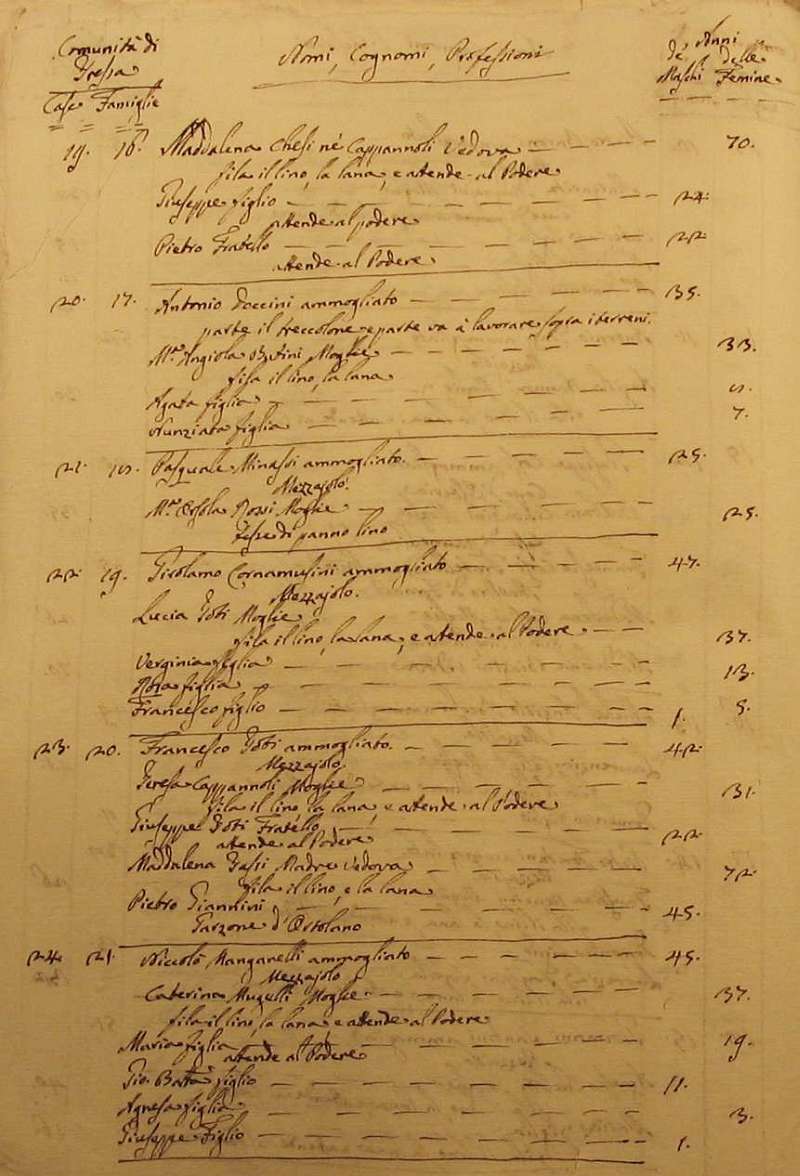 Comunità di
Tresa
Case Famiglie
Nomi, Cognomi, Professioni
Anni
de' delle
Maschi Femine
19. 18. Maddalena Chesi nè Cappannoli Vedova 70.
fila il lino, la lana, e atende al Podere
Giuseppe figlio 24.
attende al podere
Pietro Fratello 22
attende al Podere
20. 17. Antonio Doccini ammogliato 35.
parte il treccolone e parte va à lavorare sopra i terreni.
M.ª Angiola Butini Moglie 33.
fila il lino, la lana
Agata figlia
Nunziata figlia 7.
21. Pasquale ammogliato. 25.
Mezzajolo.
M.ª Orsola Rossi Moglie 25.
Tesse di panno lino
22. 19. Girolamo Cornamusini ammogliato 47.
Mezzajolo.
Lucia Goti Moglie
fila il lino, la lana, e atende al Podere 37.
Verginia figlia 13.
Rosa figlia 5.
Francesco figlio 1.
23. 20. Francesco Goti ammogliato. 42.
Mezzajolo
Teresa Cappannoli Moglie 31.
fila il lino, la lana, e attende al Podere
Giuseppe Goti Fratello 22
attende al Podere
Maddalena Madre Vedova 72.
fila il lino, e la lana
Pietro Giannini 45.
Garzone d'Ortolano
24. 21. Niccolò Manganelli ammogliato 45.
Mezzajolo
Caterina Mugelli Moglie 37.
fila il lino, la lana e attende al Podere
Maria figlia 19.
attende al Podere
Gio. Batta figlio 11.
Agnesa figlia 3.
Giuseppe Figlio 1.